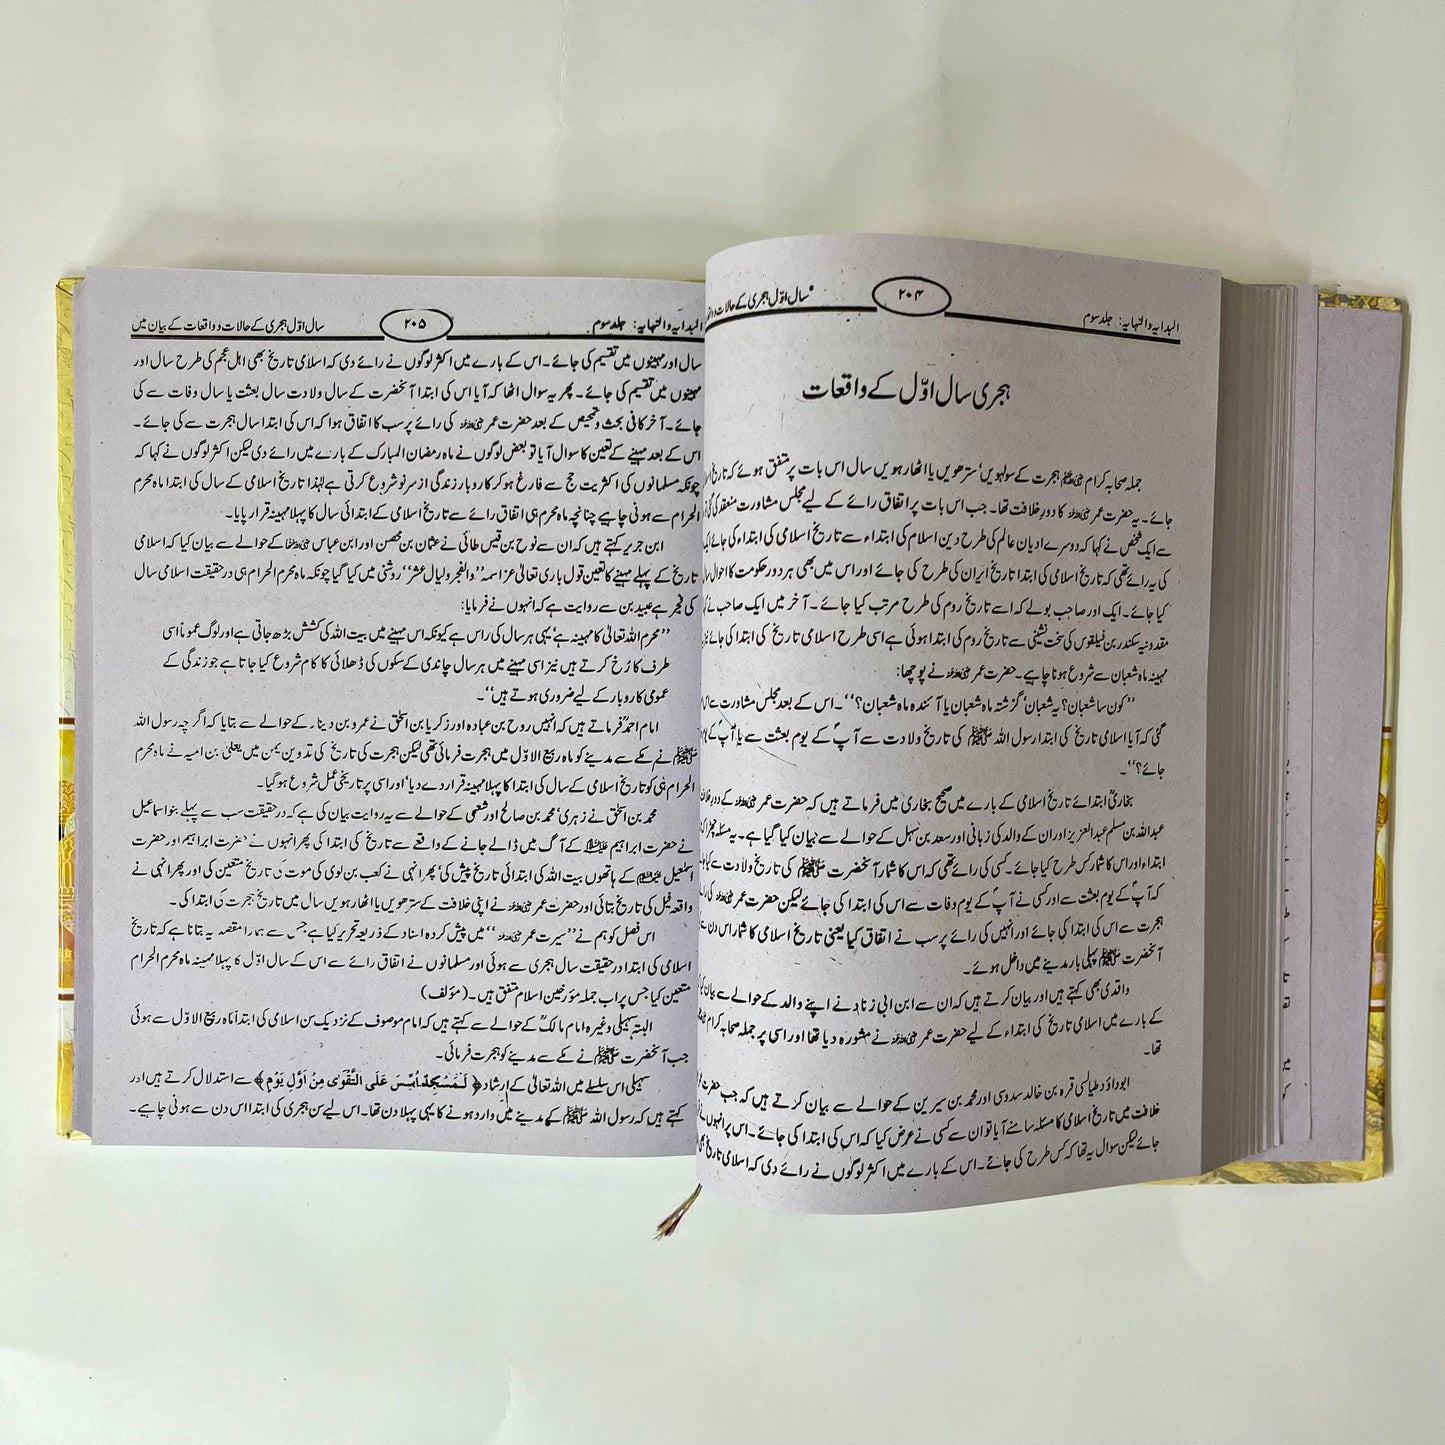 البدایہ والنہایہ: جلد سوم
۲۰۴
سال اوّل ہجری کے حالات و واقعات
ہجری سال اوّل کے واقعات
جملہ صحابہ کرام ہجرت کے سولہویں‘ سترھویں یا اٹھارہویں سال اس بات پر متفق ہوئے کہ تاریخ
جائے۔ یہ حضرت عمر کا دور خلافت تھا۔ جب اس بات پر اتفاق رائے کے لیے مجلس مشاورت منعقد کی گئی
سے ایک شخص نے کہا کہ دوسرے ادیان عالم کی طرح دین اسلام کی ابتداء سے تاریخ اسلامی کی ابتداء کی جائے
کی یہ رائے تھی کہ تاریخ اسلامی کی ابتدا تاریخ ایران کی طرح کی جائے اور اس میں بھی ہر دور حکومت کا احوال
کیا جائے۔ ایک اور صاحب بولے کہ اسے تاریخ روم کی طرح مرتب کیا جائے۔ آخر میں ایک صاحب نے
مقدونیہ سکندر بن فیلقوس کی تخت نشینی سے تاریخ روم کی ابتدا ہوئی ہے اسی طرح اسلامی تاریخ کی ابتدا کی جائے
مہینہ ماہ شعبان سے شروع ہونا چاہیے۔ حضرت عمر نے پوچھا:
’’کون سا شعبان؟ یہ شعبان‘ گزشتہ ماہ شعبان یا آئندہ ماہ شعبان؟‘‘۔ اس کے بعد مجلس مشاورت
گئی کہ آیا اسلامی تاریخ کی ابتدا رسول اللہ ﷺ کی تاریخ ولادت سے آپؐ کے یوم بعثت سے یا آپؐ کے
جائے؟‘‘۔
بخاریؒ ابتدائے تاریخ اسلامی کے بارے میں صحیح بخاری میں فرماتے ہیں کہ حضرت عمر کے دور
عبداللہ بن مسلم عبدالعزیز اور ان کے والد کی زبانی اور سعد بن سہل کے حوالے سے بیان کیا گیا ہے۔ یہ مسئلہ
ابتداء اور اس کا شمار کس طرح کیا جائے۔ کسی کی رائے تھی کہ اس کا شمار آنحضرت ﷺ کی تاریخ ولادت سے
کہ آپؐ کے یوم بعثت سے اور کسی نے آپؐ کے یوم وفات سے اس کی ابتدا کی جائے لیکن حضرت عمر کی
ہجرت سے اس کی ابتدا کی جائے اور انہیں کی رائے پر سب نے اتفاق کیا یعنی تاریخ اسلامی کا شمار اس دن
آنحضرت ﷺ پہلی بار مدینے میں داخل ہوئے۔
واقدی بھی کہتے ہیں اور بیان کرتے ہیں کہ ان سے ابن ابی زناد نے اپنے والد کے حوالے سے بیان
کے بارے میں اسلامی تاریخ کی ابتداء کے لیے حضرت عمر نے مشورہ دیا تھا اور اسی پر جملہ صحابہ کرام
تھا۔
ابوداؤد طیالسی قرہ بن خالد سدوسی اور محمد بن سیرین کے حوالے سے بیان کرتے ہیں کہ جب حضرت
خلافت میں تاریخ اسلامی کا مسئلہ سامنے آیا تو ان سے کسی نے عرض کیا کہ اس کی ابتدا کی جائے۔ اس پر انہوں نے
جائے لیکن سوال یہ تھا کہ کس طرح کی جائے۔ اس کے بارے میں اکثر لوگوں نے رائے دی کہ اسلامی تاریخ
البدایہ والنہایہ: جلد سوم
۲۰۵
سال اوّل ہجری کے حالات و واقعات کے بیان میں
سال اور مہینوں میں تقسیم کی جائے۔ اس کے بارے میں اکثر لوگوں نے رائے دی کہ اسلامی تاریخ بھی اہل عجم کی طرح سال اور
مہینوں میں تقسیم کی جائے۔ پھر یہ سوال اٹھا کہ آیا اس کی ابتدا آنحضرت کے سال ولادت سال بعثت یا سال وفات سے کی
جائے۔ آخر کافی بحث و تمحیص کے بعد حضرت عمر کی رائے پر سب کا اتفاق ہوا کہ اس کی ابتدا سال ہجرت سے کی جائے۔
اس کے بعد مہینے کے تعین کا سوال آیا تو بعض لوگوں نے ماہ رمضان المبارک کے بارے میں رائے دی لیکن اکثر لوگوں نے کہا کہ
چونکہ مسلمانوں کی اکثریت حج سے فارغ ہو کر کاروبار زندگی از سرنو شروع کرتی ہے لہٰذا تاریخ اسلامی کے سال کی ابتدا ماہ محرم
الحرام سے ہونی چاہیے چنانچہ ماہ محرم ہی اتفاق رائے سے تاریخ اسلامی کے ابتدائی سال کا پہلا مہینہ قرار پایا۔
ابن جریر کہتے ہیں کہ ان سے نوح بن قیس طائی نے عثمان بن محصن اور ابن عباس کے حوالے سے بیان کیا کہ اسلامی
تاریخ کے پہلے مہینے کا تعین قول باری تعالیٰ عز اسمہ ’’والفجر ولیال عشر‘‘ روشنی میں کیا گیا چونکہ ماہ محرم الحرام ہی در حقیقت اسلامی سال
کی فجر ہے عبید بن سے روایت ہے کہ انہوں نے فرمایا:
’’محرم اللہ تعالیٰ کا مہینہ ہے‘ یہی ہر سال کی راس ہے کیونکہ اس مہینے میں بیت اللہ کی کشش بڑھ جاتی ہے اور لوگ عموماً اسی
طرف کا رُخ کرتے ہیں نیز اسی مہینے میں ہر سال چاندی کے سکوں کی ڈھلائی کا کام شروع کیا جاتا ہے جو زندگی کے
عمومی کاروبار کے لیے ضروری ہوتے ہیں‘‘۔
امام احمدؒ فرماتے ہیں کہ انہیں روح بن عبادہ اور زکریا بن اسحٰق نے عمرو بن دینار کے حوالے سے بتایا کہ اگرچہ رسول اللہ
ﷺ نے مکے سے مدینے کو ماہ ربیع الاوّل میں ہجرت فرمائی تھی لیکن ہجرت کی تاریخ کی تدوین یمن میں یعلیٰ بن امیہ نے ماہ محرم
الحرام ہی کو تاریخ اسلامی کے سال کی ابتدا کا پہلا مہینہ قرار دے دیا‘ اور اسی پر تاریخی عمل شروع ہو گیا۔
محمد بن اسحٰق نے زہری‘ محمد بن صالح اور شعبی کے حوالے سے یہ روایت بیان کی ہے کہ در حقیقت سب سے پہلے بنو اسماعیل
نے حضرت ابراہیم کے آگ میں ڈالے جانے کے واقعے سے تاریخ کی ابتدا کی پھر انہوں نے حضرت ابراہیم اور حضرت
اسمٰعیل کے ہاتھوں بیت اللہ کی ابتدائی تاریخ پیش کی‘ پھر انہی نے کعب بن لوی کی موت کی تاریخ متعین کی اور پھر انہی نے
واقعہ فیل کی تاریخ بتائی اور حضرت عمر نے اپنی خلافت کے سترھویں یا اٹھارھویں سال میں تاریخ ہجرت کی ابتدا کی۔
اس فصل کو ہم نے ’’سیرت عمر ‘‘ میں پیش کردہ اسناد کے ذریعہ تحریر کیا ہے جس سے ہمارا مقصد یہ بتانا ہے کہ تاریخ
اسلامی کی ابتدا در حقیقت سال ہجری سے ہوئی اور مسلمانوں نے اتفاق رائے سے اس کے سال اوّل کا پہلا مہینہ ماہ محرم الحرام
متعین کیا جس پر اب جملہ مؤرخین اسلام متفق ہیں۔ (مؤلف)
البتہ سہیلی وغیرہ امام مالکؒ کے حوالے سے کہتے ہیں کہ امام موصوف کے نزدیک سن اسلامی کی ابتدا ماہ ربیع الاوّل سے ہوئی
جب آنحضرت ﷺ نے مکے سے مدینے کو ہجرت فرمائی۔
سہیلی اس سلسلے میں اللہ تعالیٰ کے ارشاد ﴿ لَمَسْجِدٌ اُسِّسَ عَلَی التَّقْوٰی مِنْ اَوَّلِ یَوْمٍ ﴾ سے استدلال کرتے ہیں اور
کہتے ہیں کہ رسول اللہ ﷺ کے مدینے میں وارد ہونے کا یہی پہلا دن تھا۔ اس لیے سن ہجری کی ابتدا اس دن سے ہونی چاہیے۔